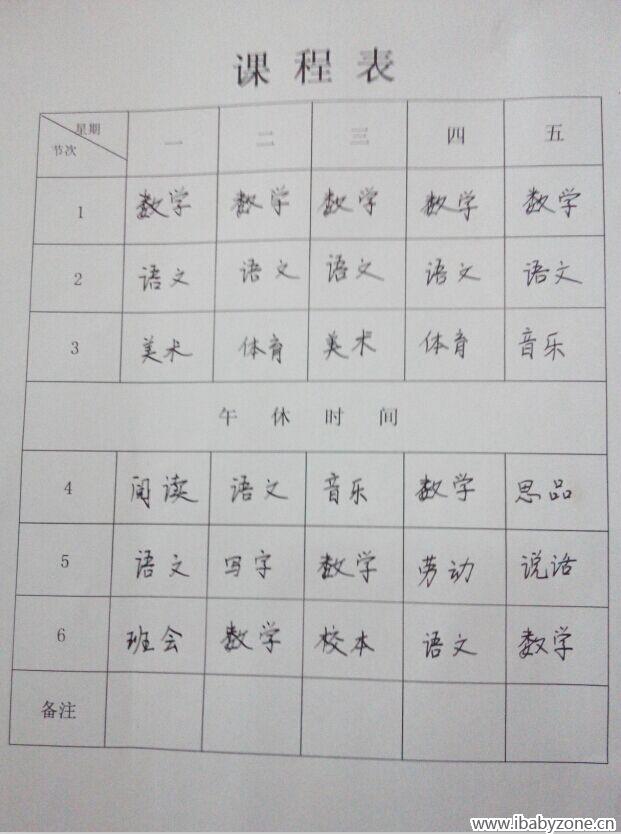 课程表
星期 节次 一 二 三 四 五
1 数学 数学 数学 数学 数学
2 语文 语文 语文 语文 语文
3 美术 体育 美术 体育 音乐
午休时间
4 阅读 语文 音乐 数学 思品
5 语文 写字 数学 劳动 说话
6 班会 数学 校本 语文 数学
备注
www.ibabyzone.cn